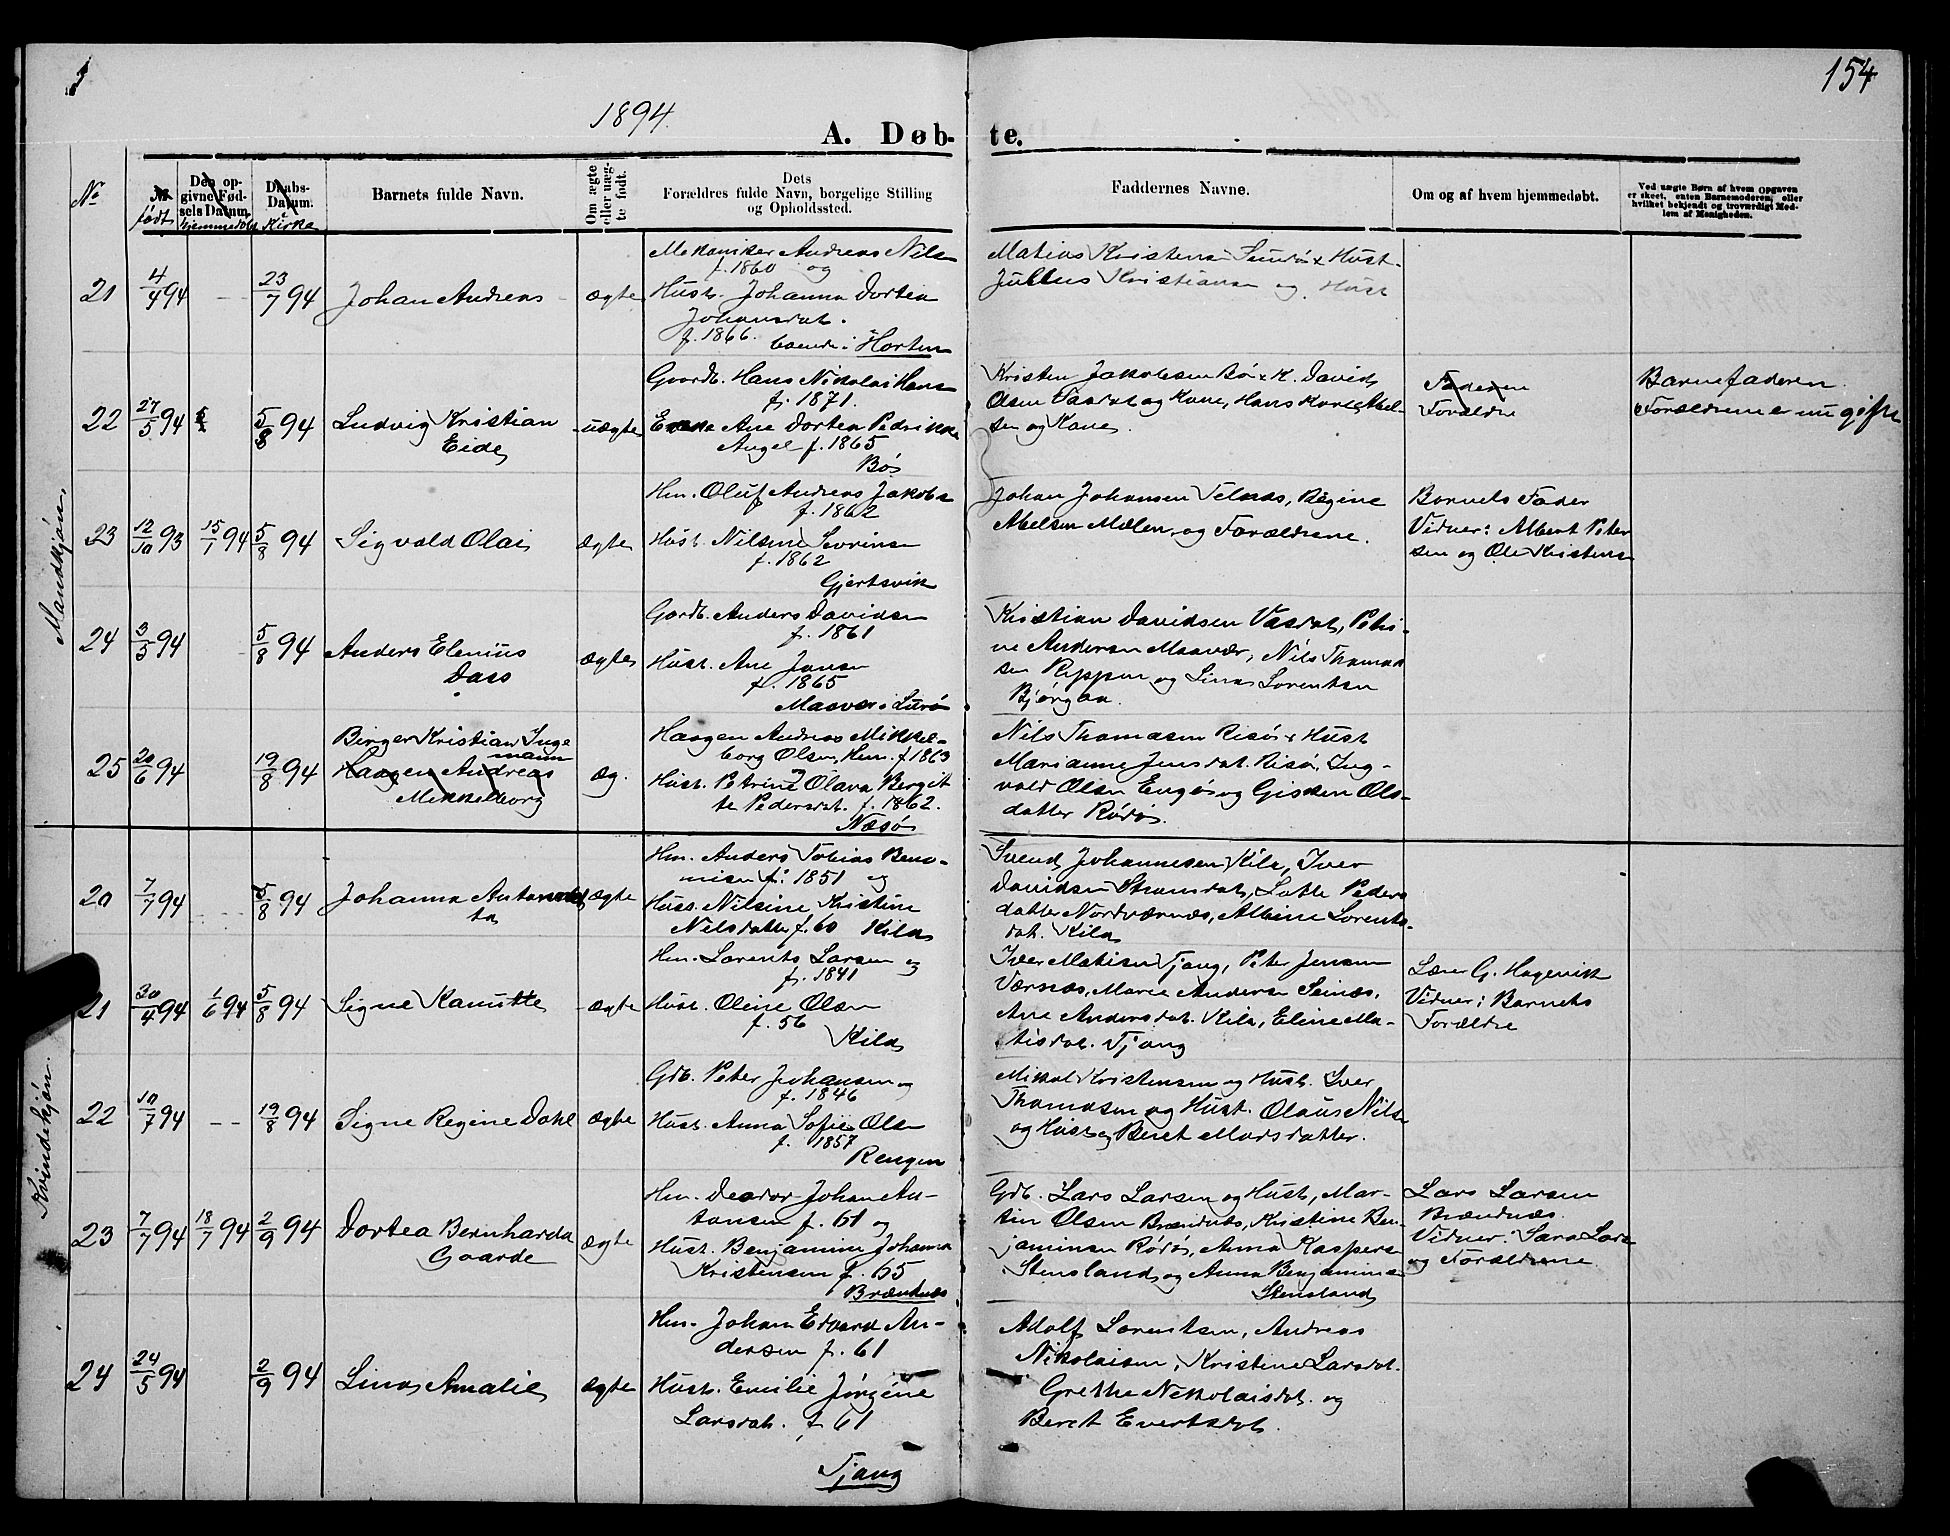 154
1894
A. Døb-te.
No
født
Den opgivne Fødsels Datum.
hjemmedøbt
Daabs-Datum.
i Kirke
Barnets fulde Navn.
Om ægte eller uægte født.
Dets Forældres fulde Navn, borgelige Stilling og Opholdssted.
Faddernes Navne.
Om og af hvem hjemmedøbt.
Ved uægte Børn af hvem Opgaven er skeet, enten Barnemoderen, eller hvilket bekjendt og troværdigt Medlem af Menigheden.
Mandkjøn.
21 4/4 94 -- 23/7 94 Johan Andreas ægte
Mekaniker Andreas Nils
f. 1860 og
Hust. Johanna Dortea
Johansdat.
f. 1866. boende i Horten
Matias Kristens & Hust
Julius Kristiansen og Hust
22 27/5 94 5/8 94 Ludvig Kristian
Eide
uægte
Gaardb. Hans Nikolai Hans
f. 1871.
Ane Dortea Pedrikke
Angel f. 1865
Bø
Kristen Jakobsen Bø & K. David
Olsen Vasdal og Kone, Hans Abel-
sen og Kone.
Faderen
Forældre
Barnefaderen
Forældrene er nu gifte
23 12/10 93 15/1 94 5/8 94 Sigvald Olai ægte
Hm. Oluf Andreas Jakobs
f. 1862
Hust. Nilsine Sevrine
f. 1862
Gjertsvik
Johan Johansen Telnes, Regine
Abelsen Mælen og Forældrene.
Barnets Fader
Vidner: Albert Peter
sen og Ole Kristens
24 3/5 94 5/8 94 Anders Elenius
Dass
ægte
Gaardb. Anders Davidsen
f. 1861
Hust. Ane Jansen
f. 1865
Maavær i Lurø
Kristian Davidsen Vasdal, Petri-
ne Andersen Maavær, Nils Thomas
sen Reppen og Lina Lorentsen
Bjørgaa.
25 20/6 94 19/8 94 Birger Kristian Inge
mann
Haagen Andreas
Mikkelborg
æg.
Haagen Andreas Mikkel-
borg Olsen, Hm. f. 1863
Hust. Petrine Olava Bergit
te Pedersdat. f. 1862.
Næsø
Nils Thomasen Risø & Hust
Marianne Jensdat. Risø, Ing-
vald Olsen Engø og Ols-
datter Rødø.
Kvindekjøn.
20 7/7 94 -- 5/8 94 Johanna
ta
ægte
Hm. Anders Tobias Beno-
nisen f. 1851 og
Hust. Nilsine Kristine
Nilsdatter f. 60 Kila
Svend Johannesen Kila, Iver
Davidsen Strømdal, Lotte Peders
datter Nordværnes, Albine Lorents-
dat. Kila
21 30/4 94 1/6 94 5/8 94 Signe Kanutte ægte
Hm. Lorents Larsen og
f. 1841
Hust. Oline Olsen
f. 56
Kila
Iver Matisen Tjong, Peter Jensen
Værnes, Marie Anderse Seines,
Ane Andersdat. Kila, Eline Ma-
tisdat. Tjong
Lærer G. Hagevik
Vidner: Barnets
Forældre
22 10/7 94 -- 19/8 94 Signe Regine Dahl ægte
Gdb. Peter Johansen og
f. 1846
Hust. Anna Sofie Olsen
f. 1857
Rengen
Mikal Kristensen og Hust. Iver
Thomasen og Hust. Olaus Nils
og Hust og Beret Morsdatter.
23 7/7 94 18/7 94 2/9 94 Dortea Bernharda
Gaarde
ægte
Hm. Deodor Johan An-
tonsen f. 61 og
Hust. Benjamine Johanna
Kristensen f. 65
Brændnes
Gdb. Lars Larsen og Hust, Mar-
tin Olsen Brændnes, Kristine Ben-
jaminsen Rødø, Anna Kaspers
Stensland og Anna Benjamins
Stensland
Lars Larsen
Brændnæs.
Vidner: Sara Lars
og Forældrene
24 24/5 94 2/9 94 Lina Amalie ægte
Hm. Johan Edvard An-
dersen f. 61
Hust. Emilie Jørgine
Larsdat. f 61
Tjong
Adolf Lorentsen, Andreas
Nikolaisen, Kristine Larsdat.
Grethe Nikolaisdat. og
Beret Evertsdat.